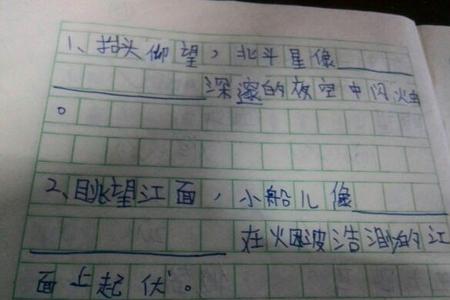 1、抬头仰望，北斗星像______
______深邃的夜空中闪烁
。
2、眺望江面，小船儿像______
______在烟波浩渺的江
面上起伏。